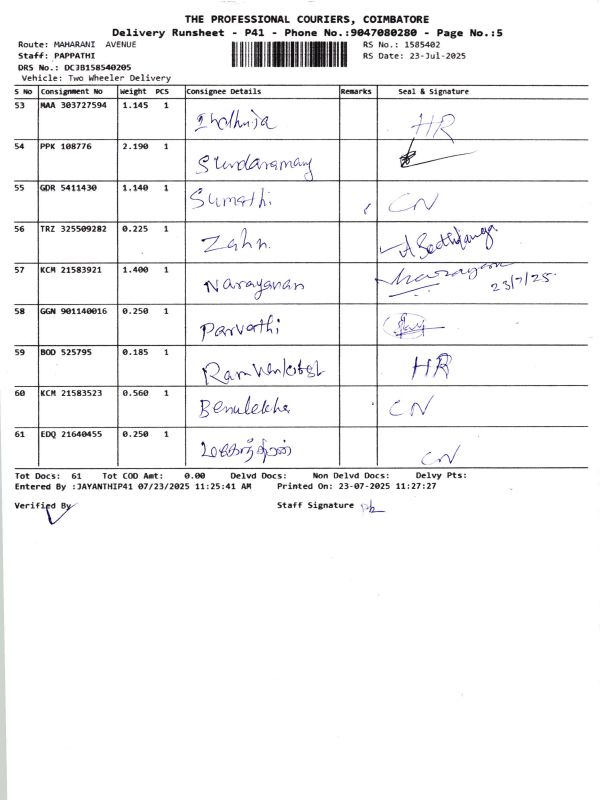 THE PROFESSIONAL COURIERS, COIMBATORE
Delivery Runsheet - P41 - Phone No.:9047080280 - Page No.:5
Route: MAHARANI AVENUE RS No.: 1585402
Staff: PAPPATHI RS Date: 23-Jul-2025
DRS No.: DCJB158540205
Vehicle: Two Wheeler Delivery
S No Consignment No Weight PCS Consignee Details Remarks Seal & Signature
53 MAA 303727594 1.145 1 HR
54 PPK 108776 2.190 1
55 GDR 5411430 1.140 1 Sumathi CN
56 TRZ 325509282 0.225 1 Zahn
57 KCM 21583921 1.400 1 Narayanan Narayan 23/7/25
58 GGN 901140016 0.250 1 Parvathi
59 BOD 525795 0.185 1 HR
60 KCM 21583523 0.560 1 CN
61 EDQ 21640455 0.250 1 CN
Tot Docs: 61 Tot COD Amt: 0.00 Delvd Docs: Non Delvd Docs: Delvy Pts:
Entered By :JAYANTHIP41 07/23/2025 11:25:41 AM Printed On: 23-07-2025 11:27:27
Verified By Staff Signature